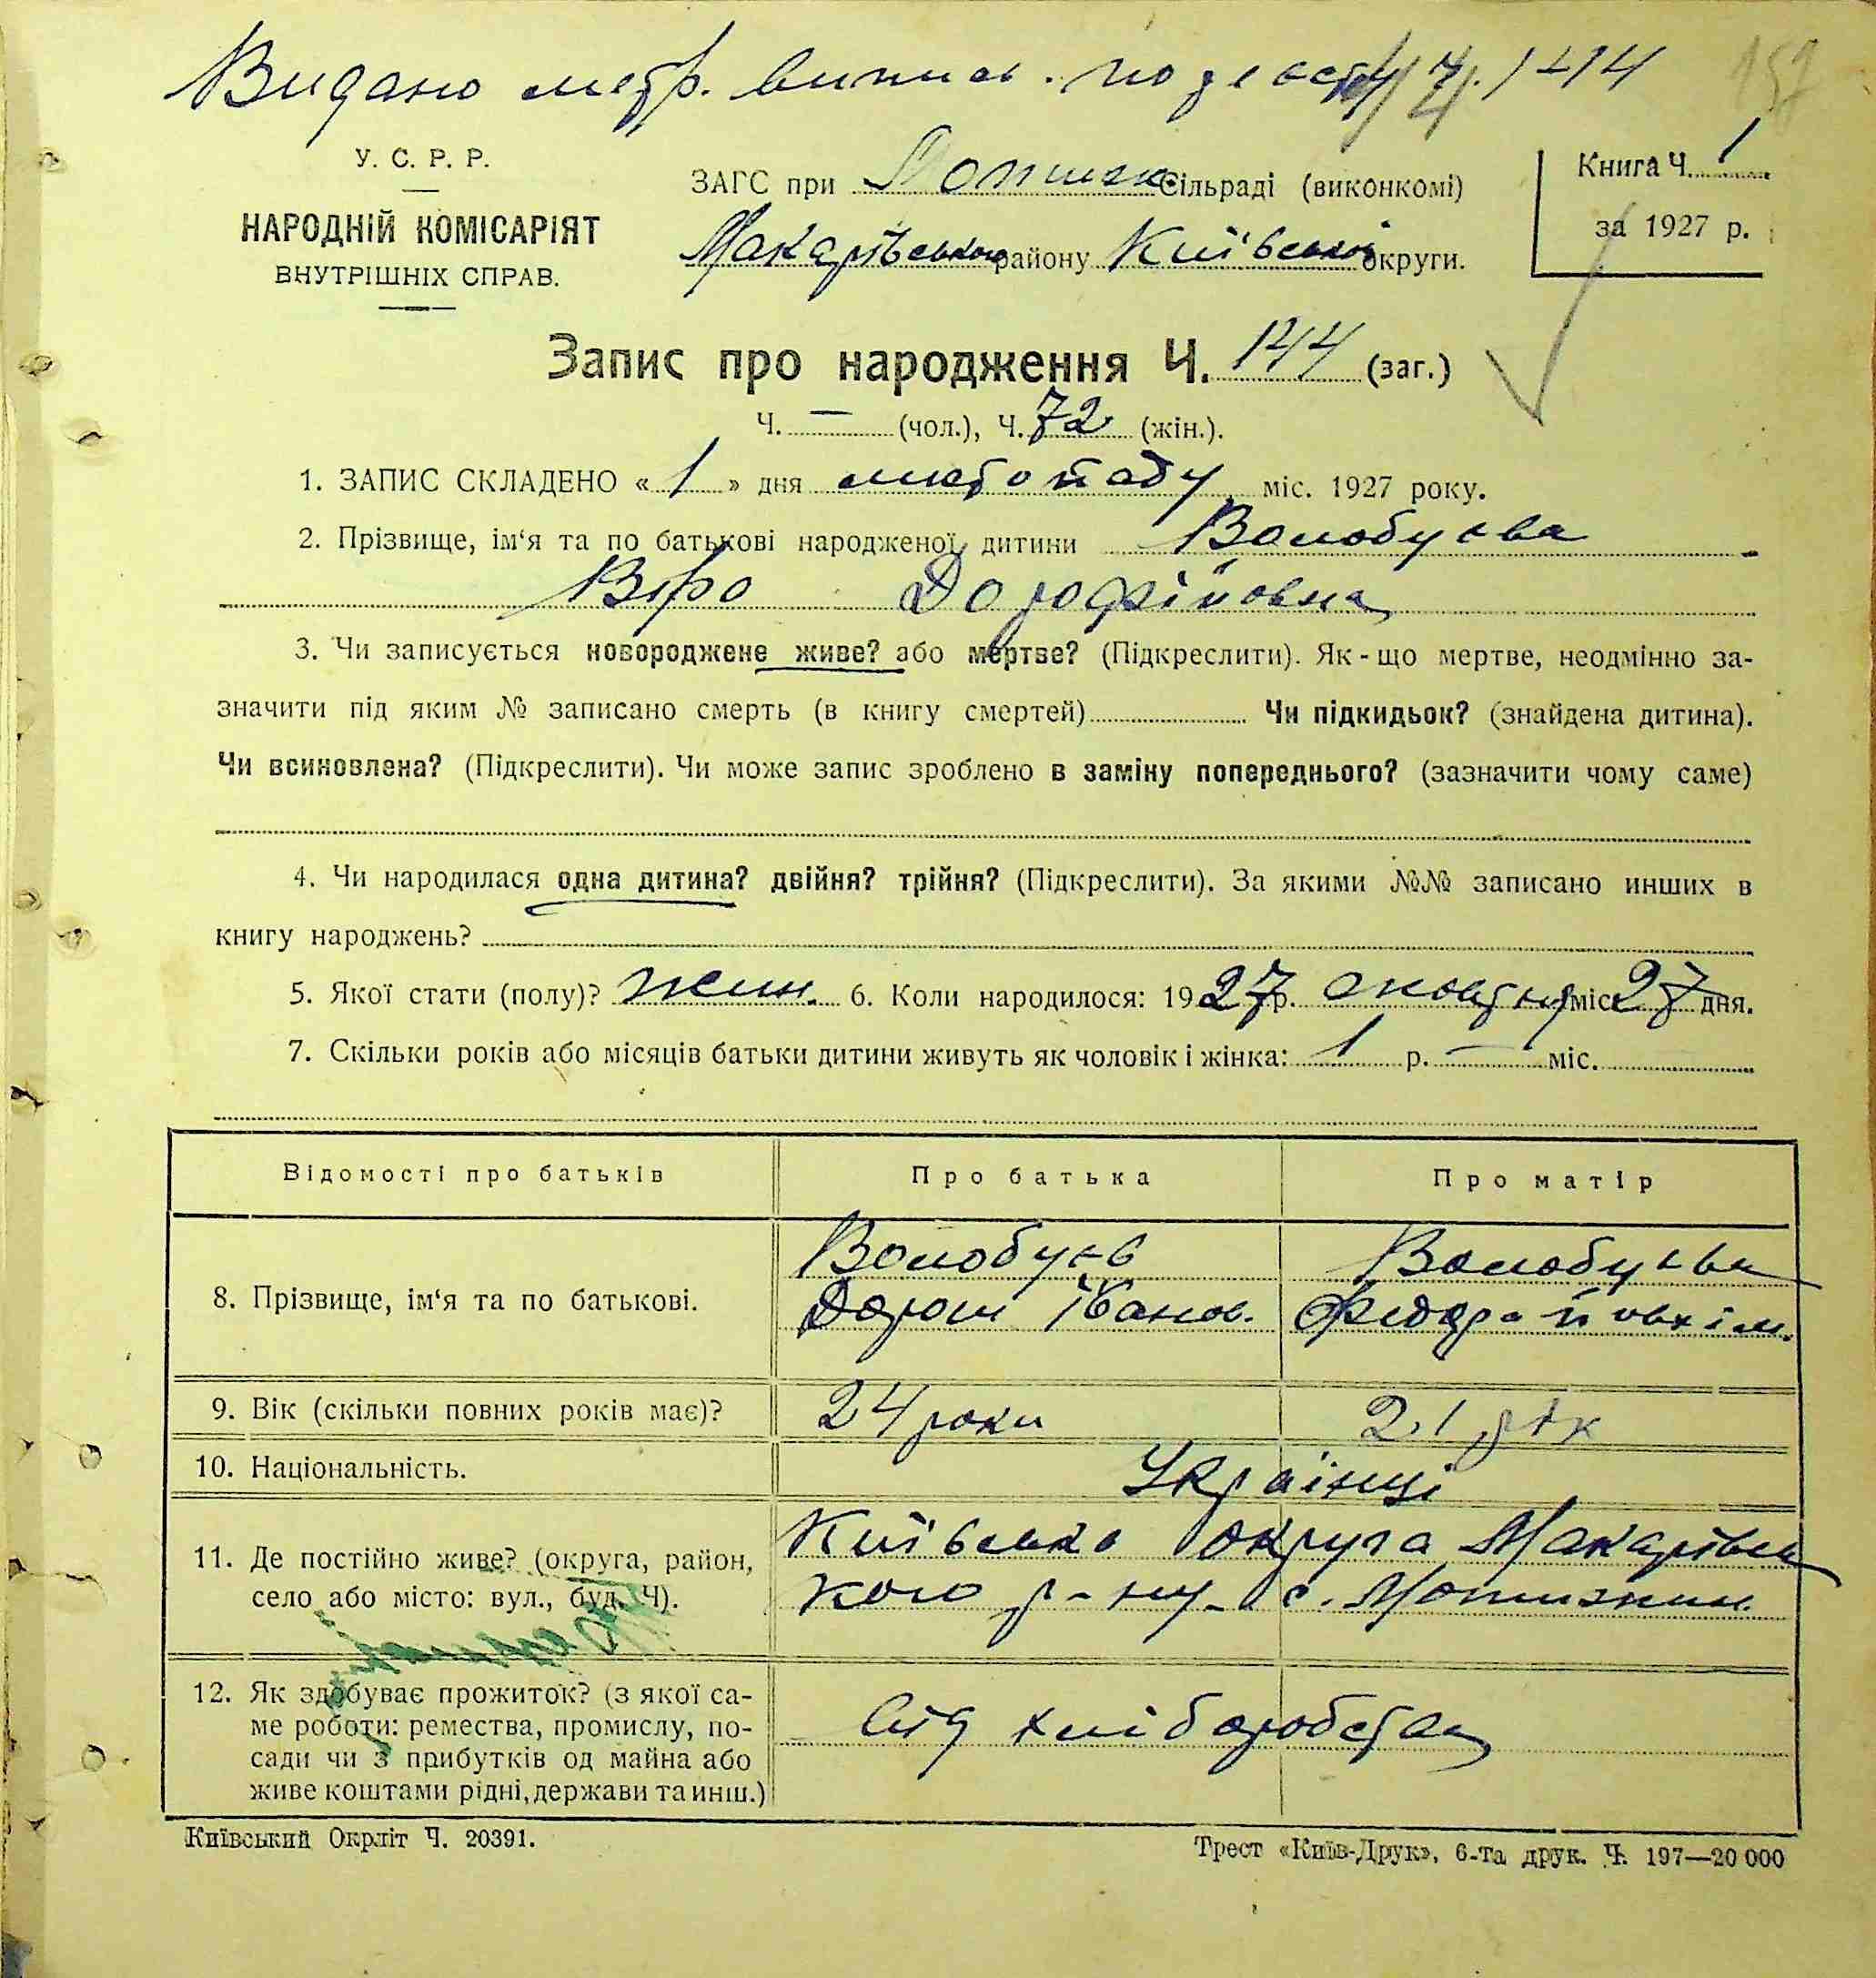 Видано метр. випис. по реєстр 1414
157
У. С. Р. Р.
НАРОДНІЙ КОМІСАРІЯТ
ВНУТРІШНІХ СПРАВ.
ЗАГС при Мотижин Сільраді (виконкомі)
Макарівського району Київської округи.
Книга Ч. 1
за 1927 р.
Запис про народження Ч. 144 (заг.)
Ч. — (чол.), Ч. 72 (жін.).
1. ЗАПИС СКЛАДЕНО « 1 » дня листопаду міс. 1927 року.
2. Прізвище, ім‘я та по батькові народженої дитини Волобуєва
Віра Дорофіївна
3. Чи записується новороджене живе? або мертве? (Підкреслити). Як-що мертве, неодмінно за-
значити під яким № записано смерть (в книгу смертей) Чи підкидьок? (знайдена дитина).
Чи всиновлена? (Підкреслити). Чи може запис зроблено в заміну попереднього? (зазначити чому саме)
4. Чи народилася одна дитина? двійня? трійня? (Підкреслити). За якими №№ записано инших в
книгу народжень?
5. Якої стати (полу)? жін. 6. Коли народилося: 1927 р. жовтня міс 27 дня.
7. Скільки років або місяців батьки дитини живуть як чоловік і жінка: 1 р. — міс.
Відомості про батьків Про батька Про матір
8. Прізвище, ім‘я та по батькові.
Волобуєв Волобуєва
Дорош Іванов. Федора Йовхім.
9. Вік (скільки повних років має)? 24 роки 21 рік
10. Національність. Українці
11. Де постійно живе? (округа, район,
село або місто: вул., буд. Ч).
Київська округа Макарівсь
кого р-ну с. Мотижин
12. Як здобуває прожиток? (з якої са-
ме роботи: ремества, промислу, по-
сади чи з прибутків од майна або
живе коштами рідні, держави та инш.)
від хліборобства
Київський Окрліт Ч. 20391.
Трест «Київ-Друк», 6-та друк. Ч. 197—20 000